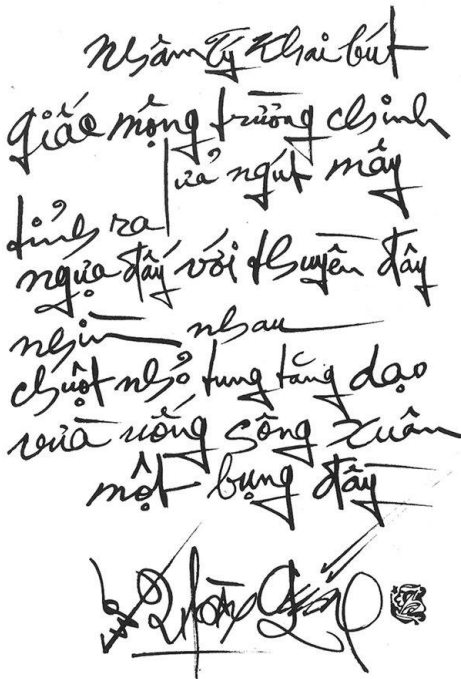 Nhâm Tý Khai bút
giấc mộng trường chinh
ngút mây
tỉnh ra
ngựa đấy với thuyền đây
nhìn nhau
chuột nhỏ tung tăng dạo
vừa uống sông xuân
một bụng đầy